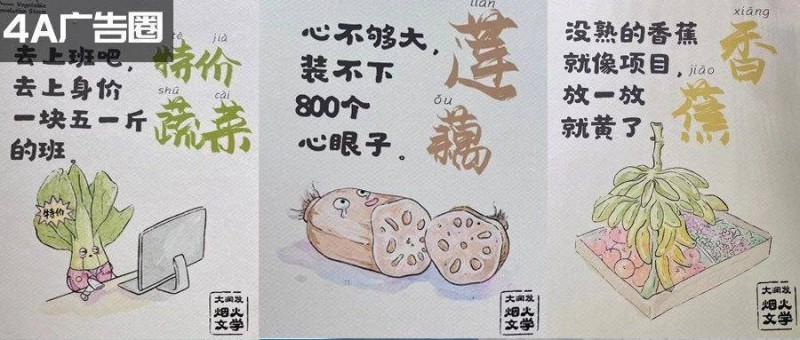 4A广告圈
去上班吧,
去上身价
一块五一斤
的班。
tè jià
特价
shū cài
蔬菜
特价
大润发
烟火
文学
心不够大,
装不下
800个
心眼子。
lián
莲
ǒu
藕
大润发
烟火
文学
没熟的香蕉
就像项目,
放一放
就黄了
xiāng
香
jiāo
蕉
大润发
烟火
文学